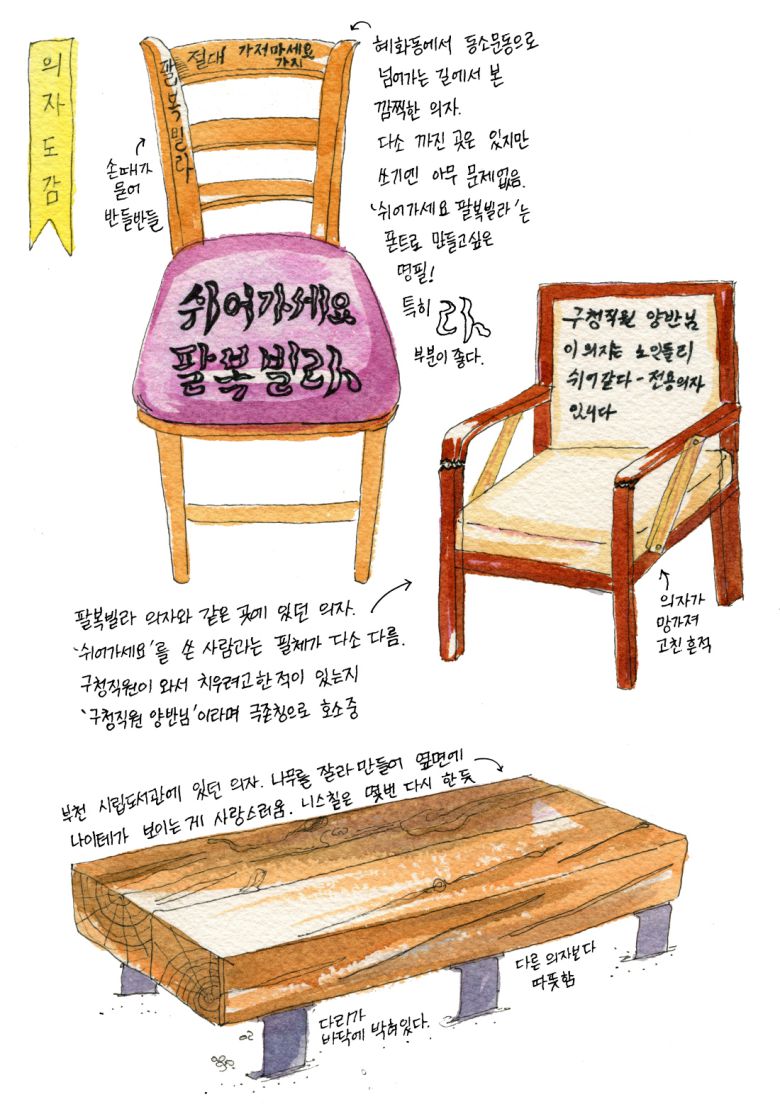 의자도감
절대 가저마세요
가지
팔복빌라
손때가
묻어
반들반들
혜화동에서 동소문동으로
넘어가는 길에서 본
깜찍한 의자.
다소 까진 곳은 있지만
쓰기엔 아무 문제없음.
'쉬어가세요 팔복빌라'는
폰트로 만들고싶은
명필!
특히 라
부분이 좋다.
쉬어가세요
팔복빌라
구청직원 양반님
이 의자는 노인들리
쉬어갈다-전용의자
있니다
의자가
망가져
고친 흔적
팔복빌라 의자와 같은 곳에 있던 의자.
'쉬어가세요'를 쓴 사람과는 필체가 다소 다름.
구청직원이 와서 치우려고한 적이 있는지
'구청직원 양반님'이라며 극존칭으로 호소중
부천 시립도서관에 있던 의자. 나무를 잘라 만들어 옆면에
나이테가 보이는 게 사랑스러움. 니스칠은 몇번 다시 한듯
다른 의자보다
따뜻함
다리가
바닥에 박혀있다.